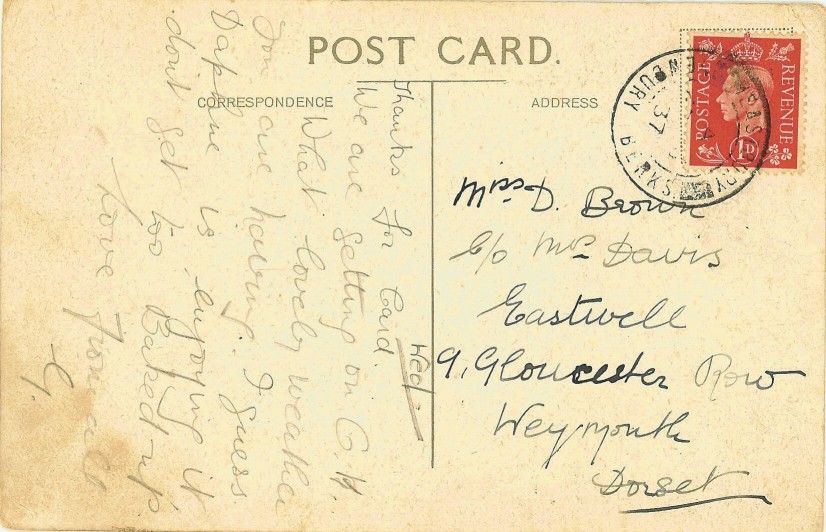 POST CARD.
CORRESPONDENCE
ADDRESS
POSTAGE
REVENUE
1D
NEWBURY BERKS
37
Miss D. Brown
c/o Mrs Davis
Eastwell
9, Gloucester Row
Weymouth
Dorset
Wed.
Thanks for Card.
We are getting on O.K.
What lovely weather
You are having. I guess
Daphne is enjoying it
don't get too Baked-up
Love from all
G.